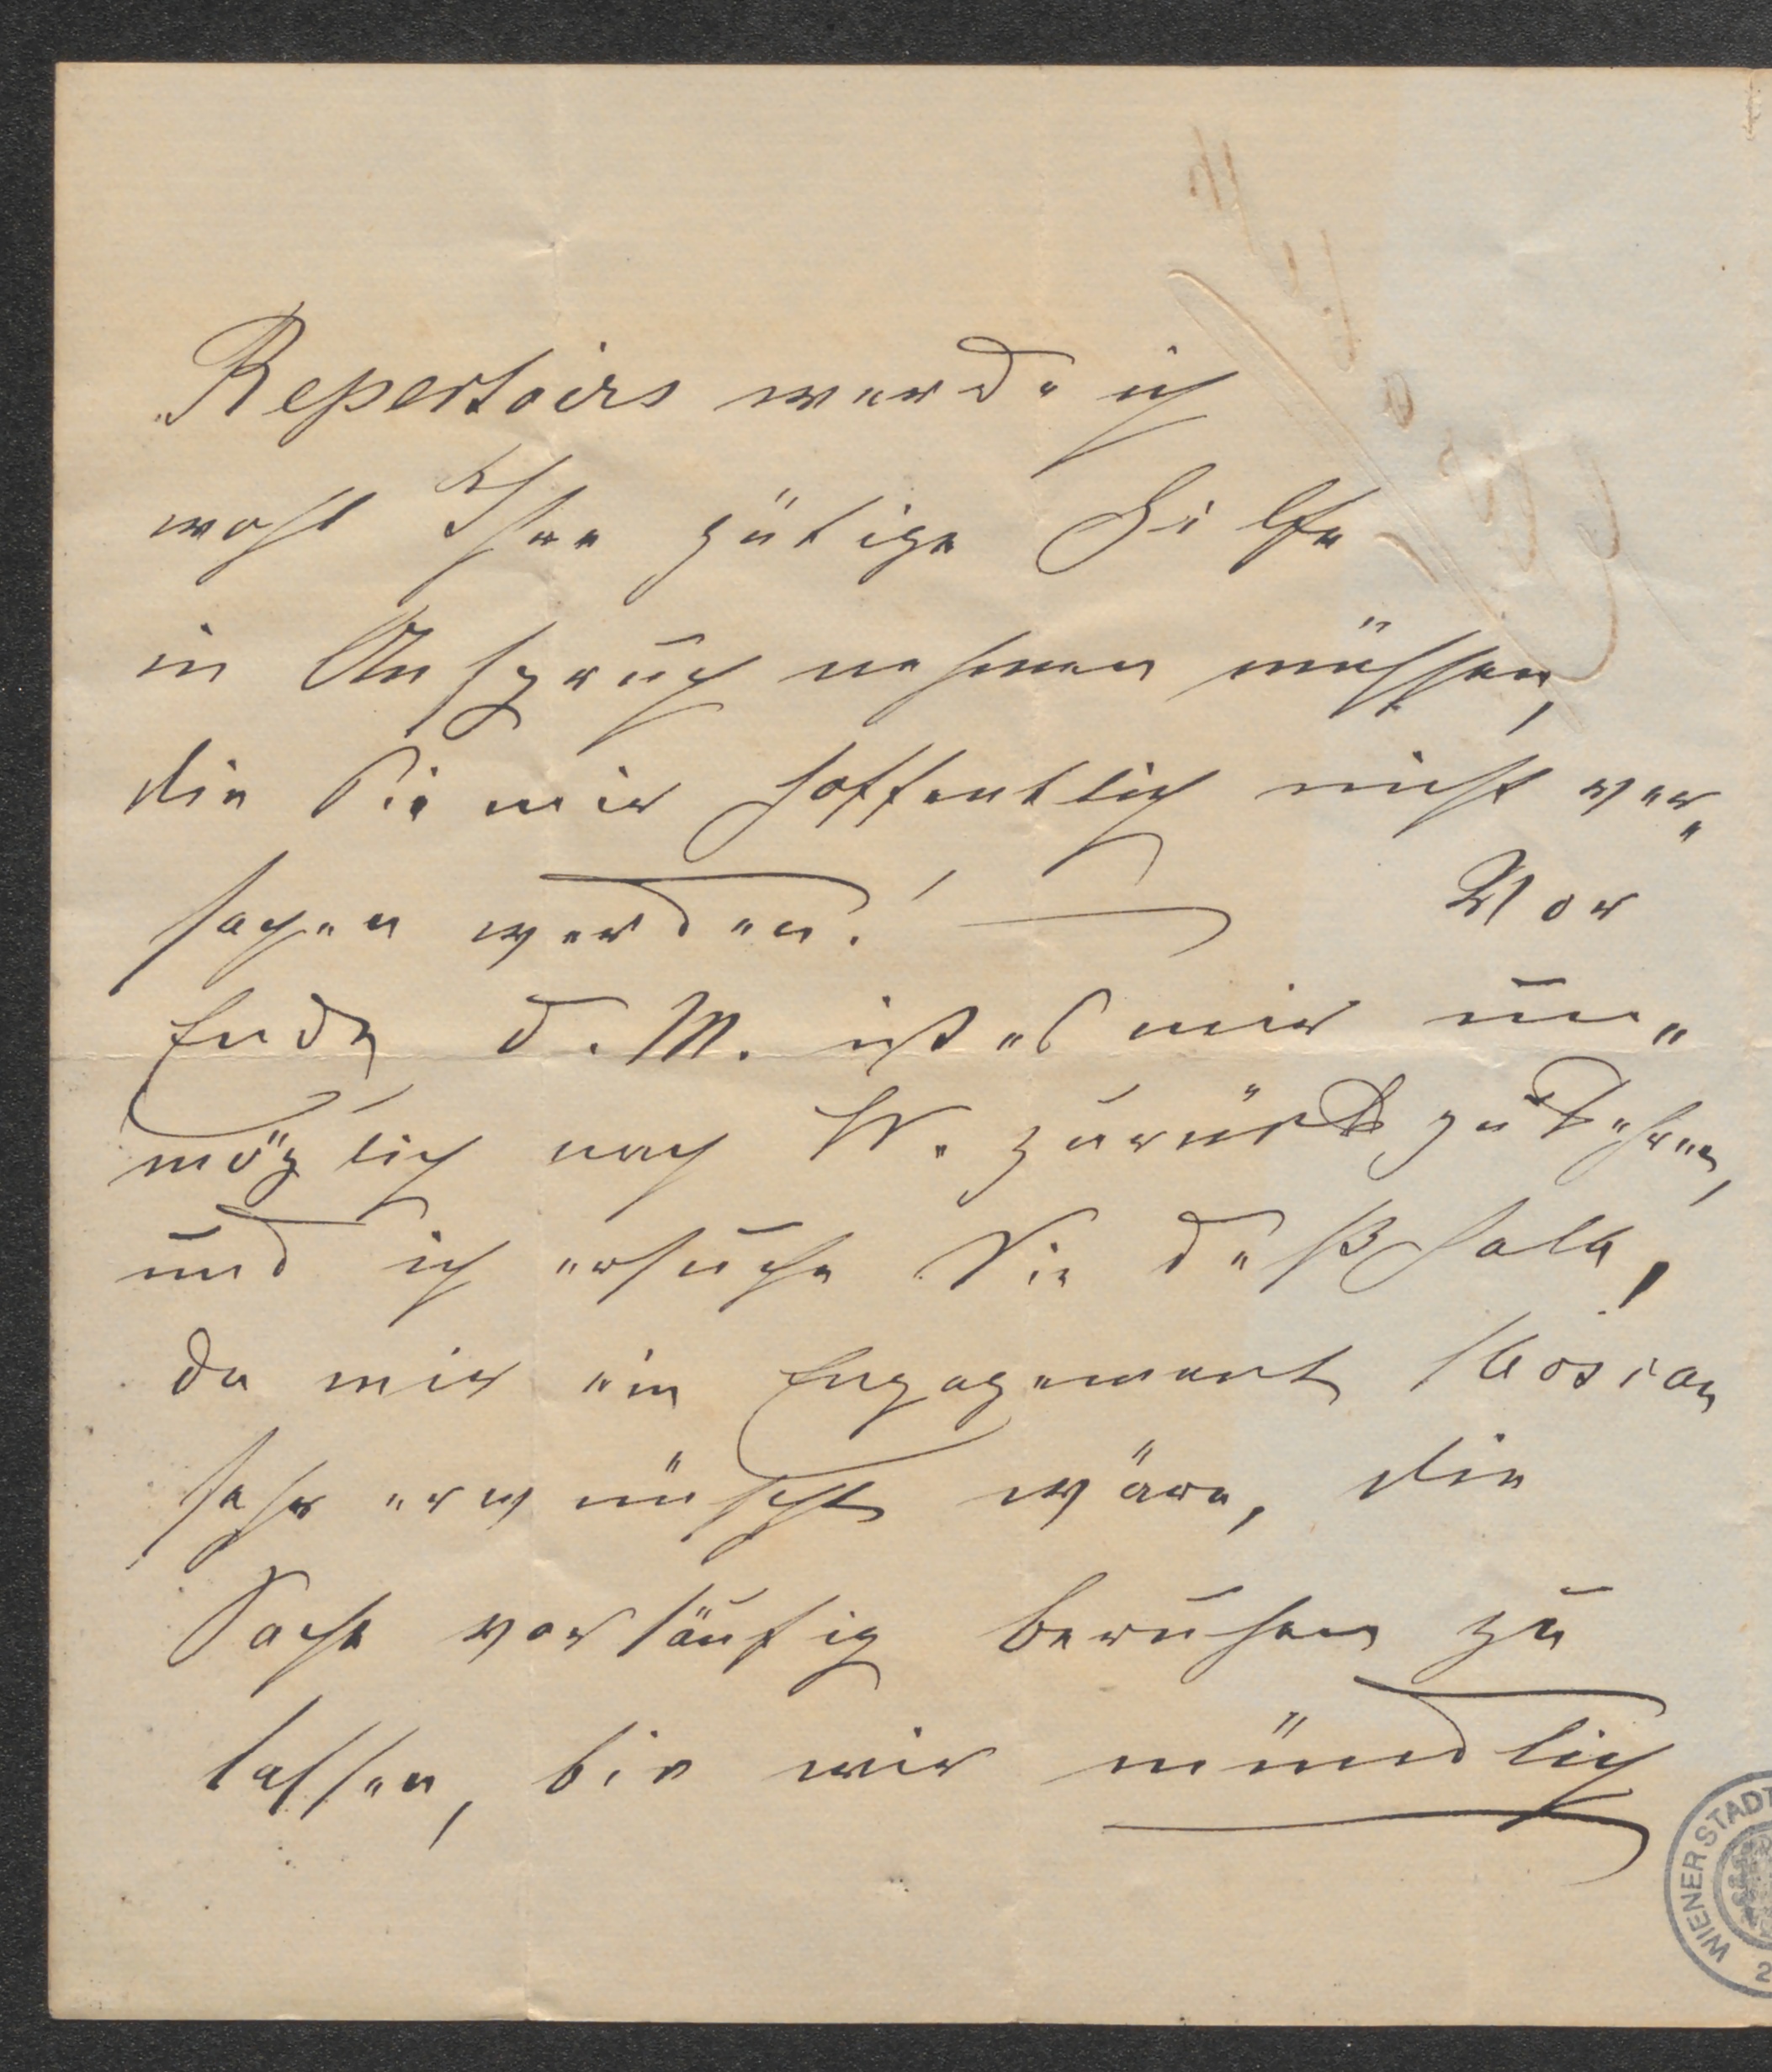 Repertoirs werde ich
wohl Ihre gütige Hilfe
in Anspruch nehmen müssen,
die Sie mir hoffentlich nicht ver„
sagen werden! — Vor
Ende d. M. ist es mir un„
möglich nach W. zurückzukehren,
und ich ersuche Sie deßhalb,
da mir ein Engagement
sehr erwünscht wäre, die
Sache vorläufig beruhen zu
lassen, bis wir mündlich
WIENER STADT
2